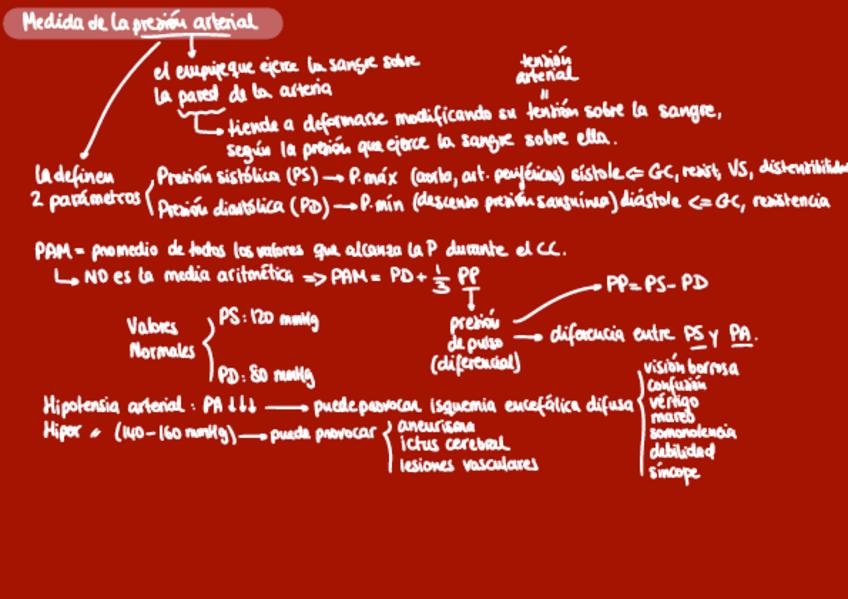 Medida de la presión arterial
el empuje que ejerce la sangre sobre
la pared de la arteria
tensión
arterial
"
tiende a deformarse modificando su tensión sobre la sangre,
según la presión que ejerce la sangre sobre ella.
la definen
2 parámetros
Presión sistólica (PS) → P. máx (aorta, art. periféricas) sístole <= GC, resist, VS, distensibilidad
Presión diastólica (PD) → P. mín (descenso presión sanguínea) diástole <= GC, resistencia
PAM = promedio de todos los valores que alcanza la P durante el CC.
↳ NO es la media aritmética => PAM = PD + 1/3 PP
PP = PS - PD
presión
de pulso
(diferencial)
→ diferencia entre PS y PA.
Valores
Normales
PS: 120 mmHg
PD: 80 mmHg
Hipotensia arterial: PA ↓↓↓ → puede provocar isquemia encefálica difusa
visión borrosa
confusión
vértigo
mareo
somnolencia
debilidad
síncope
Hiper " (140-160 mmHg) → puede provocar
aneurisma
ictus cerebral
lesiones vasculares